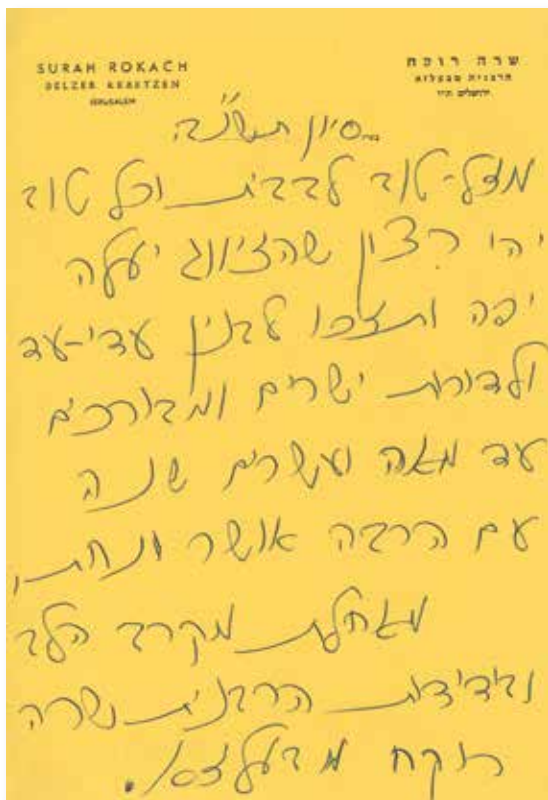 SURAH ROKACH
BELZER REBETZEN
JERUSALEM
שרה רוקח
הרבנית מבעלזא
ירושלים ת"ו
סיון
מזל-טוב לבבית וכל טוב
יהי רצון שהזיווג יעלה
יפה ותזכו לבנין עדי-עד
ולדורות ישרים ומבורכים
עד מאה ועשרים שנה
עם הרבה אושר ונחת,
מאחלת מקרב הלב
בידידות הרבנית שרה
רוקח מבעלזא.